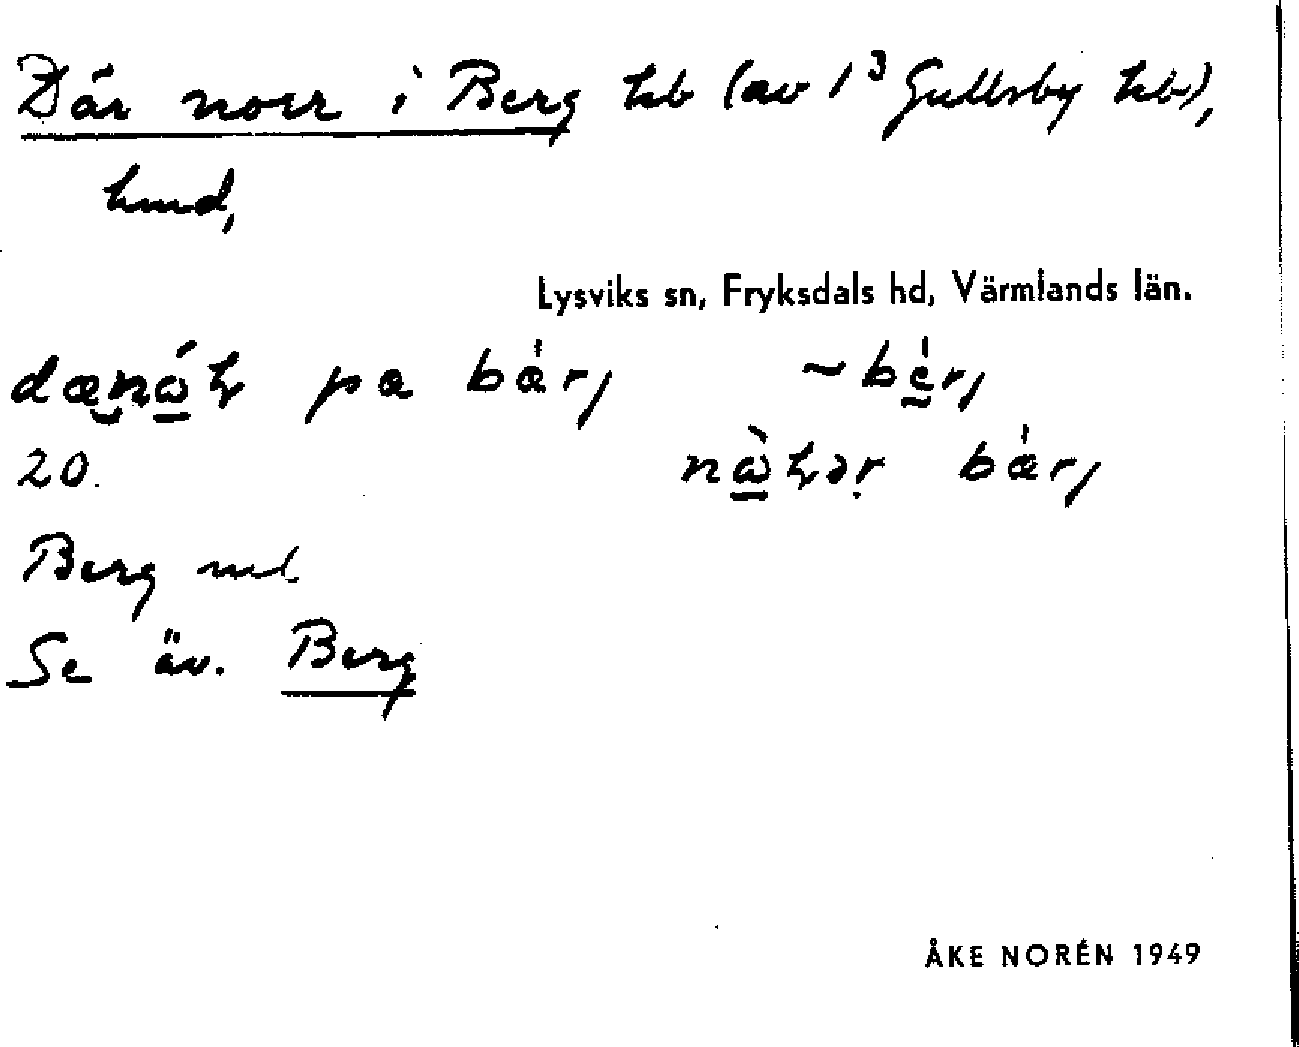 Där norr i Berg hb (av 1³ Gullsby hb),
hmd,
Lysviks sn, Fryksdals hd, Värmlands län.
pa bær, ~ bér,
20. bær,
Berg
Se äv. Berg
ÅKE NORÉN 1949